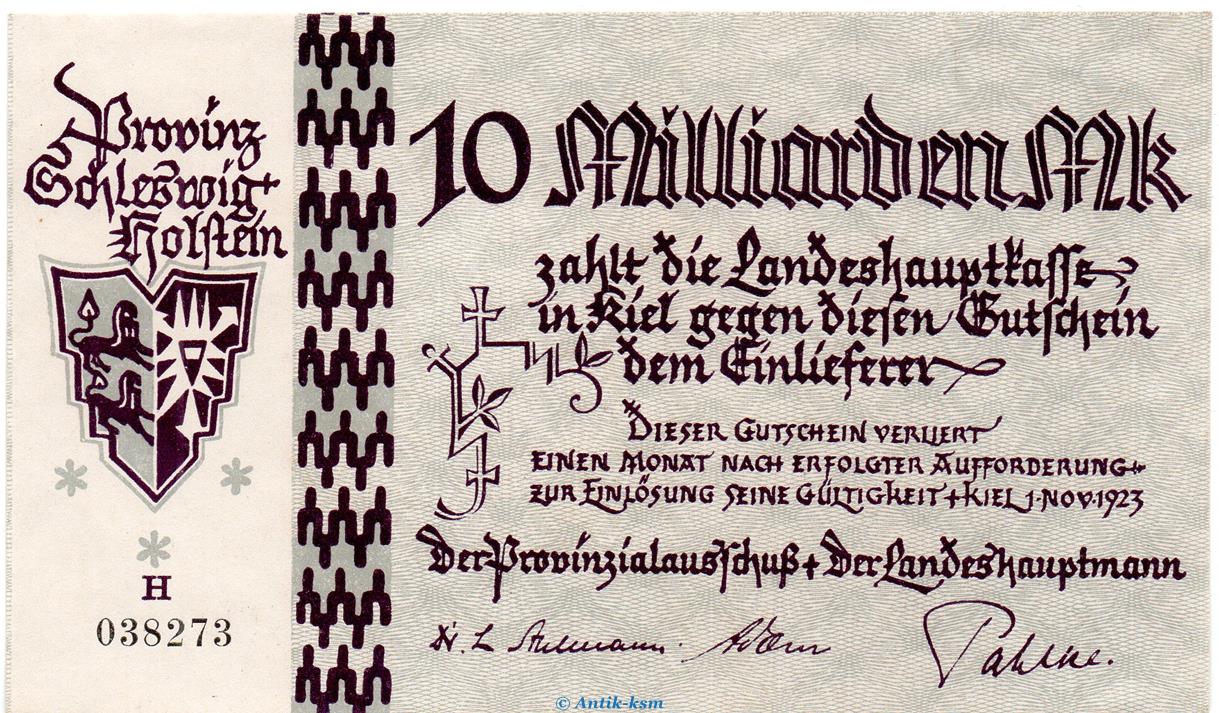 Provinz
Schleswig-
Holstein
H
038273
10 Milliarden Mk
zahlt die Landeshauptkasse
in Kiel gegen diesen Gutschein
dem Einlieferer
DIESER GUTSCHEIN VERLIERT
EINEN MONAT NACH ERFOLGTER AUFFORDERUNG
ZUR EINLÖSUNG SEINE GÜLTIGKEIT + KIEL 1. NOV. 1923
Der Provinzialausschuß + Der Landeshauptmann
Pahlke.
© Antik-ksm